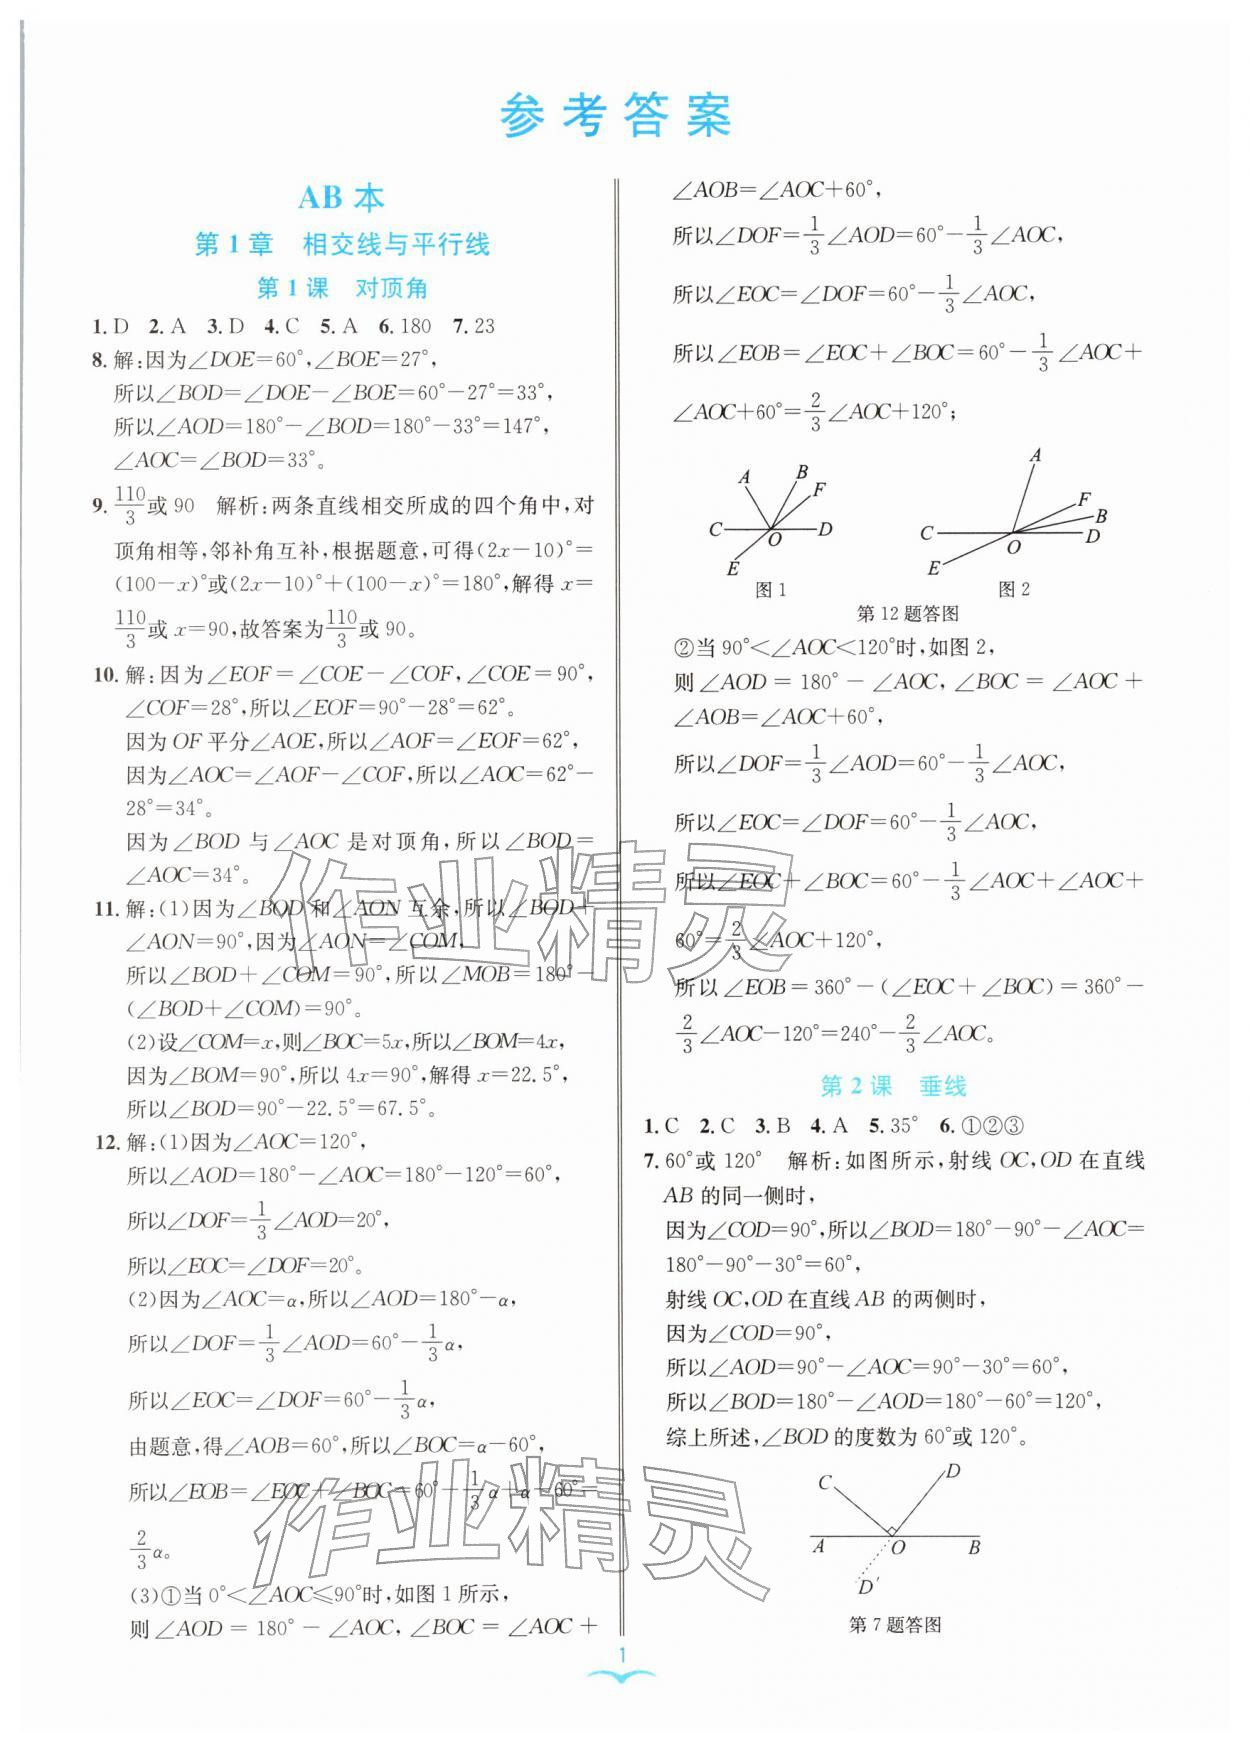 参考答案
AB本
第1章 相交线与平行线
第1课 对顶角
1. D 2. A 3. D 4. C 5. A 6. 180 7. 23
8. 解:因为∠DOE=60°,∠BOE=27°,
所以∠BOD=∠DOE-∠BOE=60°-27°=33°,
所以∠AOD=180°-∠BOD=180°-33°=147°,
∠AOC=∠BOD=33°。
9. 110/3或90 解析:两条直线相交所成的四个角中,对
顶角相等,邻补角互补,根据题意,可得(2x-10)°=
(100-x)°或(2x-10)°+(100-x)°=180°,解得x=
110/3或x=90,故答案为110/3或90。
10. 解:因为∠EOF=∠COE-∠COF,∠COE=90°,
∠COF=28°,所以∠EOF=90°-28°=62°。
因为OF平分∠AOE,所以∠AOF=∠EOF=62°,
因为∠AOC=∠AOF-∠COF,所以∠AOC=62°-
28°=34°。
因为∠BOD与∠AOC是对顶角,所以∠BOD=
∠AOC=34°。
11. 解:(1)因为∠BOD和∠AON互余,所以∠BOD+
∠AON=90°,因为∠AON=∠COM,
所以∠BOD+∠COM=90°,所以∠MOB=180°-
(∠BOD+∠COM)=90°。
(2)设∠COM=x,则∠BOC=5x,所以∠BOM=4x,
因为∠BOM=90°,所以4x=90°,解得x=22.5°,
所以∠BOD=90°-22.5°=67.5°。
12. 解:(1)因为∠AOC=120°,
所以∠AOD=180°-∠AOC=180°-120°=60°,
所以∠DOF=1/3∠AOD=20°,
所以∠EOC=∠DOF=20°。
(2)因为∠AOC=α,所以∠AOD=180°-α,
所以∠DOF=1/3∠AOD=60°-1/3α,
所以∠EOC=∠DOF=60°-1/3α,
由题意,得∠AOB=60°,所以∠BOC=α-60°,
所以∠EOB=∠EOC+∠BOC=60°-1/3α+α-60°=
2/3α。
(3)①当0°<∠AOC≤90°时,如图1所示,
则∠AOD=180°-∠AOC,∠BOC=∠AOC+
∠AOB=∠AOC+60°,
所以∠DOF=1/3∠AOD=60°-1/3∠AOC,
所以∠EOC=∠DOF=60°-1/3∠AOC,
所以∠EOB=∠EOC+∠BOC=60°-1/3∠AOC+
∠AOC+60°=2/3∠AOC+120°;
A B F C O D E
图1
A F B C O D E
图2
第12题答图
②当90°<∠AOC<120°时,如图2,
则∠AOD=180°-∠AOC,∠BOC=∠AOC+
∠AOB=∠AOC+60°,
所以∠DOF=1/3∠AOD=60°-1/3∠AOC,
所以∠EOC=∠DOF=60°-1/3∠AOC,
所以∠EOC+∠BOC=60°-1/3∠AOC+∠AOC+
60°=2/3∠AOC+120°,
所以∠EOB=360°-(∠EOC+∠BOC)=360°-
2/3∠AOC-120°=240°-2/3∠AOC。
第2课 垂线
1. C 2. C 3. B 4. A 5. 35° 6. ①②③
7. 60°或120° 解析:如图所示,射线OC,OD在直线
AB的同一侧时,
因为∠COD=90°,所以∠BOD=180°-90°-∠AOC=
180°-90°-30°=60°,
射线OC,OD在直线AB的两侧时,
因为∠COD=90°,
所以∠AOD=90°-∠AOC=90°-30°=60°,
所以∠BOD=180°-∠AOD=180°-60°=120°,
综上所述,∠BOD的度数为60°或120°。
C D A O B D′
第7题答图
1
作业精灵
作业精灵